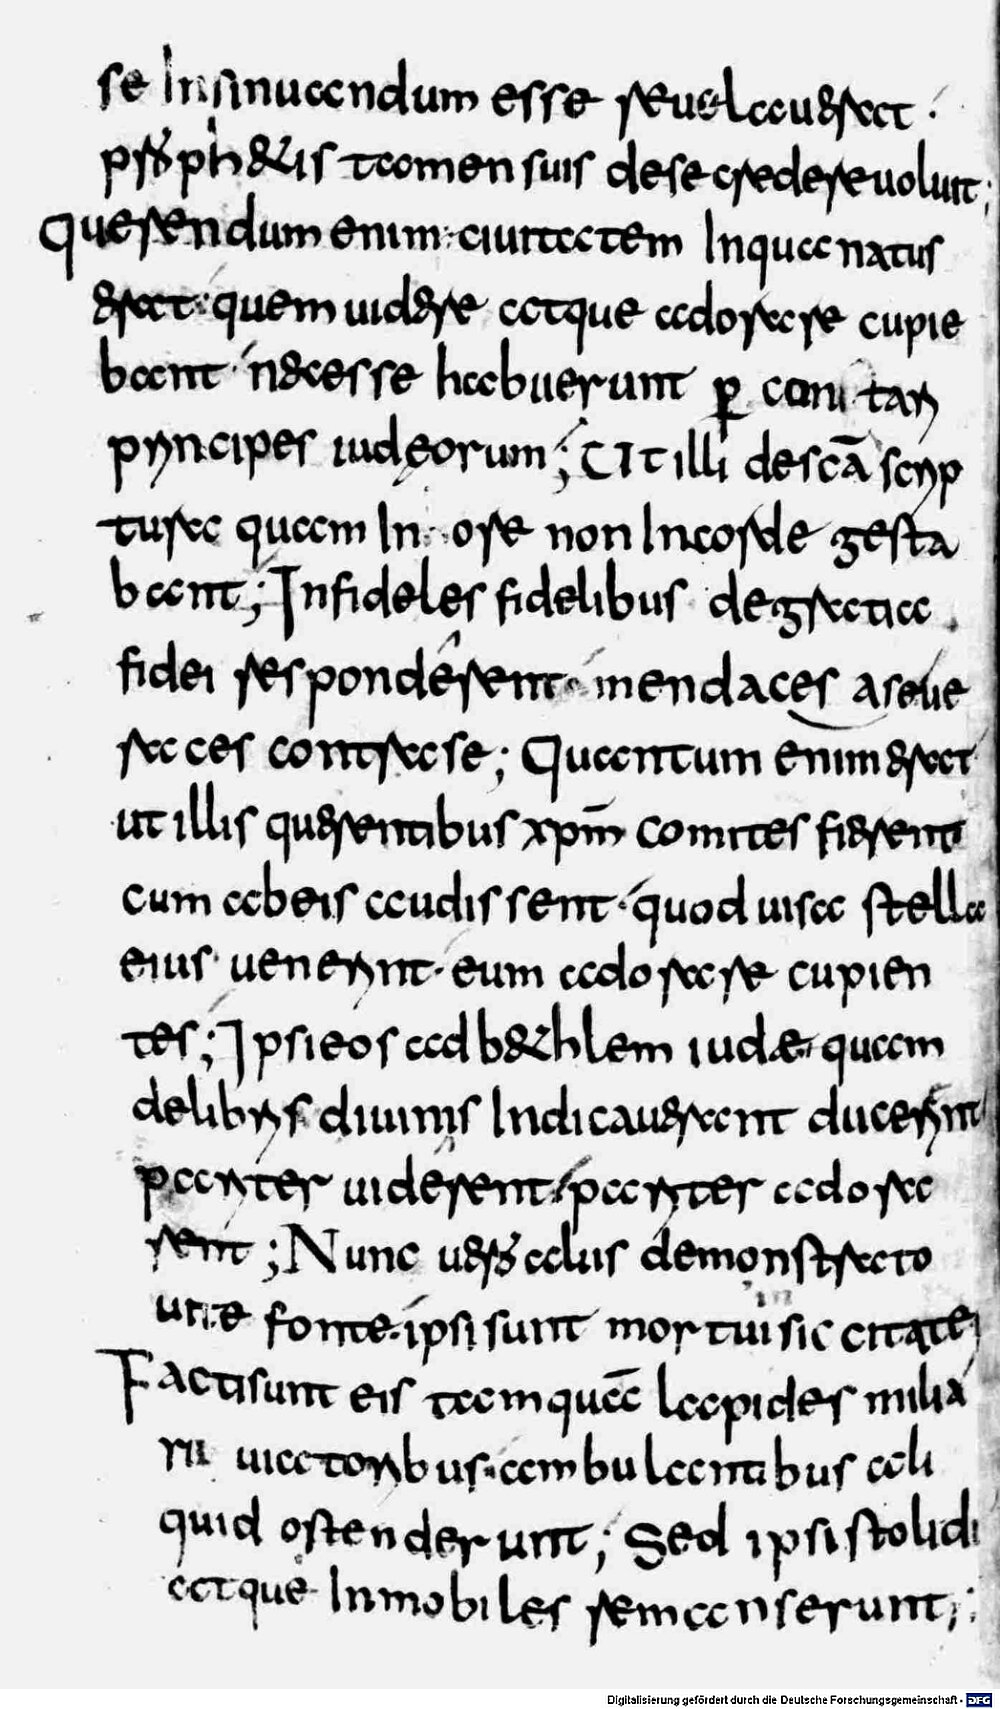 se Insinuandum esse reuelauerat.
p̄ser ph&is tamen suis dese credere uoluit;
Querendum enim. ciuitatem Inqua natus
erat. quem uidere atque adorare cupie
bant. necesse habuerunt ꝑ cunctari
principes iudęorum; Ut illi descā scrip
tura quam In ore non Incorde gesta
bant; Infideles fidelibus de gratia
fidei responderent. mendaces aseue
races contrase; Quantum enim erat
ut illis querentibus xp̄m comites fierent
cum abeis audissent. quod uisa stella
eius uenerint. eum adorare cupien
tes; Ipsi eos ad b&hlem iudæ quam
delibris diuinis Indicauerant ducerent
pariter uiderent. pariter adora
rent; Nunc uero aliis demonstrato
uite fonte. ipsi sunt mortui siccitate;
Facti sunt eis tamquā lapides milia
rii uiatoribus ambulantibus ali
quid ostenderunt; Sed ipsi stolidi
atque Inmobiles remanserunt;
Digitalisierung gefördert durch die Deutsche Forschungsgemeinschaft - DFG